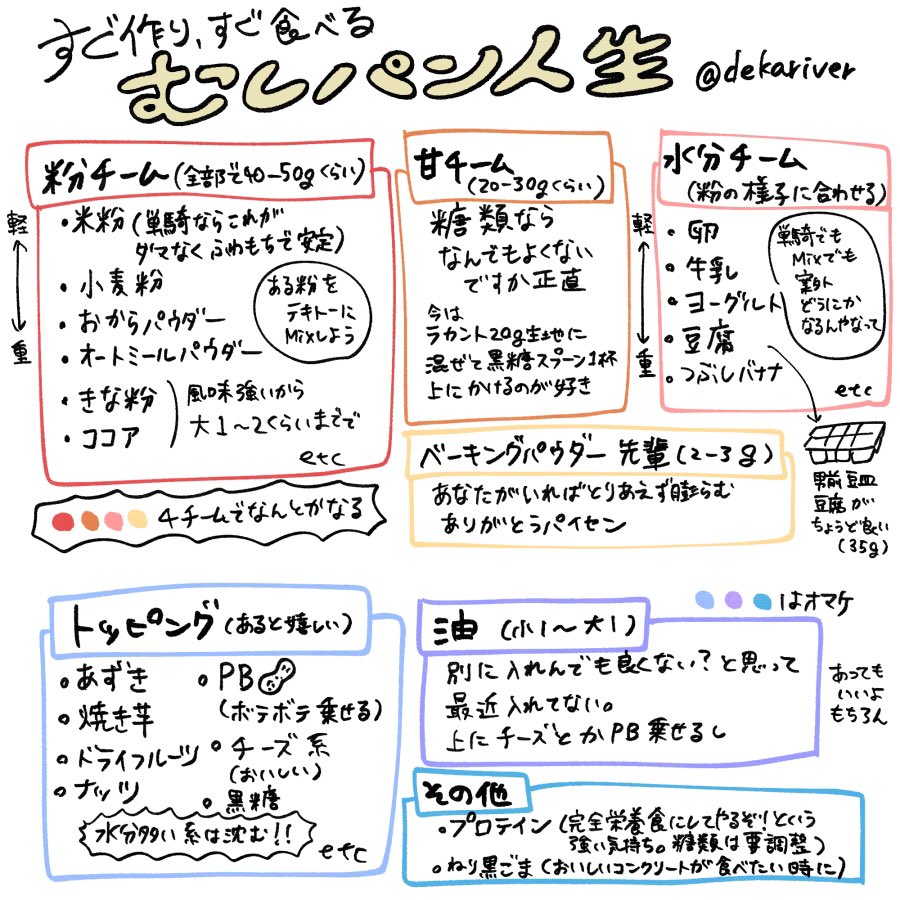 すぐ作り、すぐ食べる
むしパン人生
@dekariver
粉チーム(全部で40–50gくらい)
軽
重
・米粉(単騎ならこれが
ダマなくふわもちで安定)
・小麦粉
・おからパウダー
・オートミールパウダー
・きな粉
・ココア
風味強いから
大1～2くらいまでで
etc
ある粉を
テキトーに
Mixしよう
甘チーム
(20–30gくらい)
糖類なら
なんでもよくない
ですか正直
今は
ラカント20g生地に
混ぜて黒糖スプーン1杯
上にかけるのが好き
水分チーム
(粉の様子に合わせる)
軽
重
・卵
・牛乳
・ヨーグルト
・豆腐
・つぶしバナナ
etc
単騎でも
Mixでも
案外
どうにか
なるんやなって
男前豆皿
豆腐が
ちょうど良い
(35g)
ベーキングパウダー先輩(2–3g)
あなたがいればとりあえず膨らむ
ありがとうパイセン
4チームでなんとかなる
トッピング(あると嬉しい)
・あずき
・焼き芋
・ドライフルーツ
・ナッツ
・PB
(ボテボテ乗せる)
・チーズ系
(おいしい)
・黒糖
水分多い系は沈む!!
etc
はオマケ
油(小1～大1)
別に入れんでも良くない?と思って
最近入れてない。
上にチーズとかPB乗せるし
あっても
いいよ
もちろん
その他
・プロテイン(完全栄養食にしてやるぞ!という
強い気持ち。糖類は要調整)
・ねり黒ごま(おいしいコンクリートが食べたい時に)